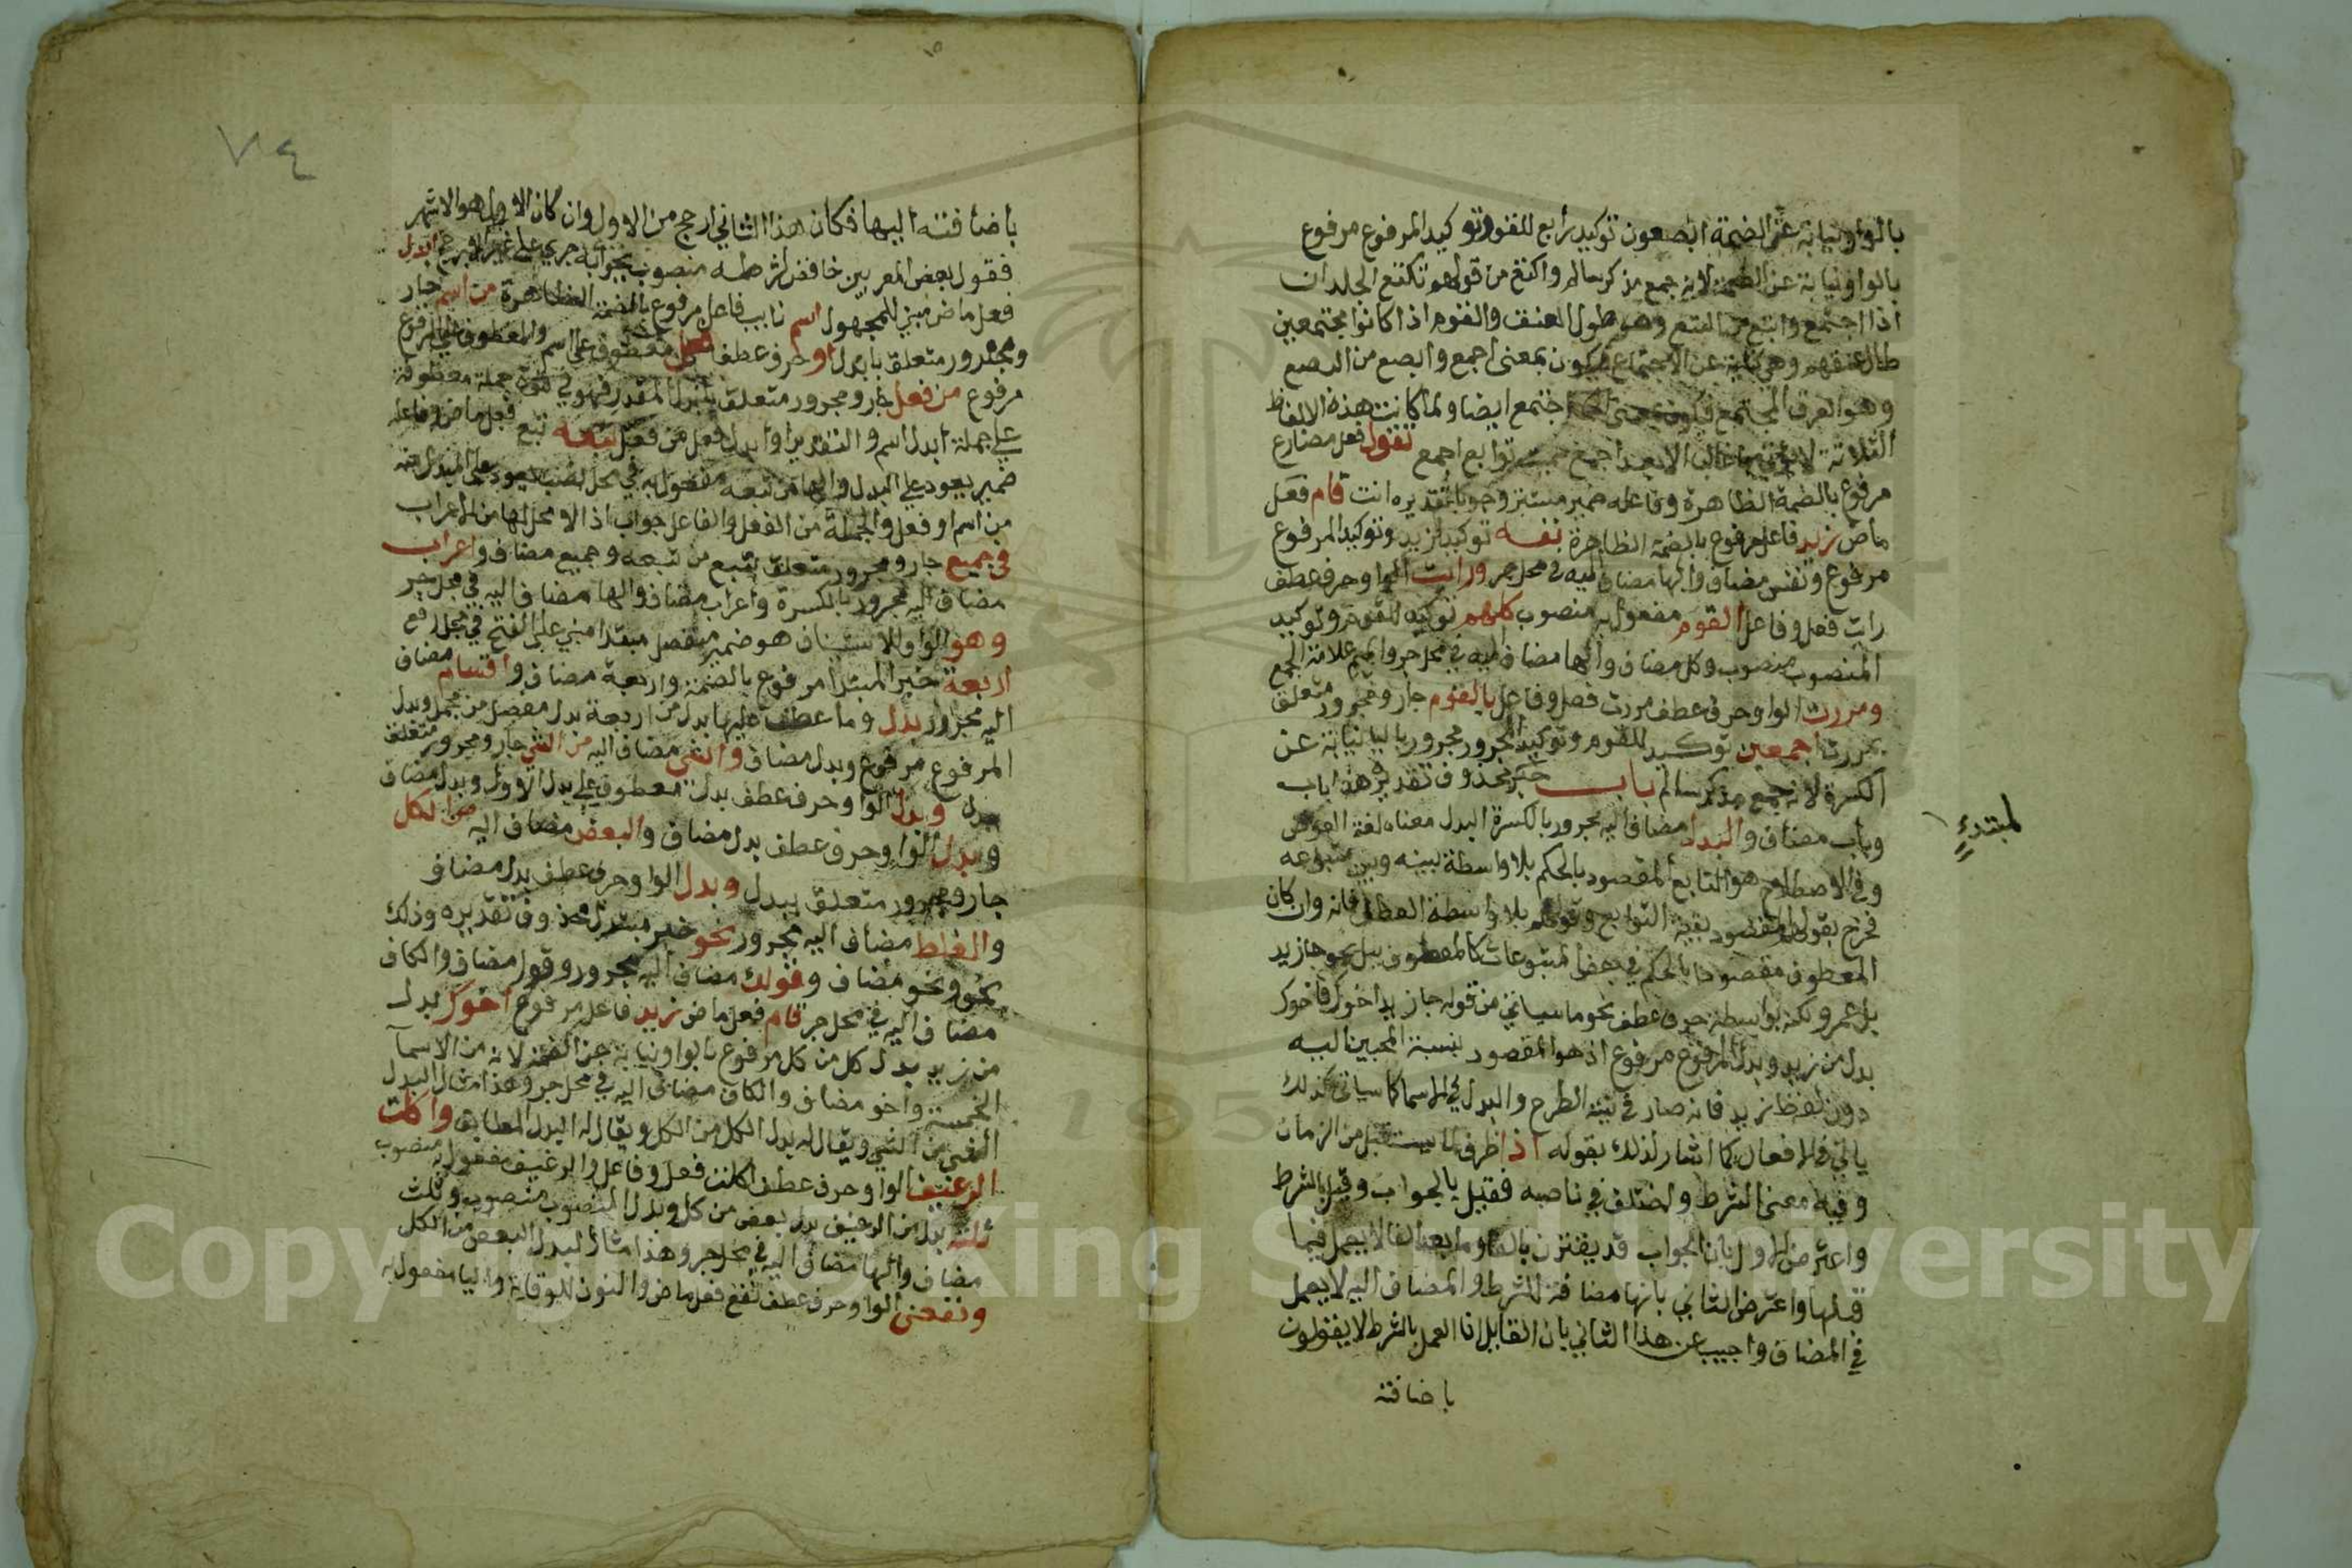 بالواو نيابة عن الضمة ابصعون توكيد رابع للقوم وتوكيد المرفوع مرفوع
بالواو نيابة عن الضمة لانه جمع مذكر سالم واكتع من قولهم تكتع الجلد ان
اذا اجتمع وابتع من البتع وهو طول العنق والقوم اذا كانوا مجتمعين
طال عنقهم وهي كناية عن الاجتماع فيكون بمعنى اجمع وابصع من البصع
وهو العرق المجتمع فيكون بمعنى اجتمع ايضا ولما كانت هذه الالفاظ
الثلاثة لا يؤتى بها غالبا الا بعد اجمع سميت توابع اجمع تقول فعل مضارع
مرفوع بالضمة الظاهرة وفاعله ضمير مستتر وجوبا تقديره انت قام فعل
ماض زيد فاعل مرفوع بالضمة الظاهرة نفسه توكيد لزيد وتوكيد المرفوع
مرفوع ونفس مضاف والها مضاف اليه في محل جر ورايت الواو حرف عطف
رايت فعل وفاعل القوم مفعول به منصوب كلهم توكيد للقوم وتوكيد
المنصوب منصوب وكل مضاف والها مضاف اليه في محل جر والميم علامة الجمع
ومررت الواو حرف عطف مررت فعل وفاعل بالقوم جار ومجرور متعلق
بمررت اجمعين توكيد للقوم وتوكيد المجرور مجرور باليا نيابة عن
الكسرة لانه جمع مذكر سالم باب خبر محذوف تقديره هذا باب
لمبتدء
وباب مضاف والبدل مضاف اليه مجرور بالكسرة البدل معناه لغة العوض
وفي الاصطلاح هو التابع المقصود بالحكم بلا واسطة بينه وبين متبوعه
فخرج بقولهم المقصود بقية التوابع وقولهم بلا واسطة العطف فانه وان كان
المعطوف مقصودا بالحكم في بعض المتبوعات كالمعطوف ببل نحو جا زيد
بل عمرو لكنه بواسطة حرف عطف نحو ما سياتي من قوله جا زيد اخوك فاخوك
بدل من زيد وبدل المرفوع مرفوع اذ هو المقصود بنسبة المجيئ اليه
دون لفظ زيد فانه صار في نية الطرح والبدل في الاسما كما سياتي كذلك
ياتي في الافعال كما اشار لذلك بقوله اذا ظرف لما يستقبل من الزمان
وفيه معنى الشرط واختلف في ناصبه فقيل بالجواب وقيل بالشرط
واعترض الاول بان الجواب قد يقترن بالفا وما بعد الفا لا يعمل فيما
قبلها واعترض الثاني بانها مضافة للشرط والمضاف اليه لا يعمل
في المضاف واجيب عن هذا الثاني بان القايل ان العمل بالشرط لا يقولون
باضافته
٧٤
باضافته اليها فكان هذا الثاني ارجح من الاول وان كان الاول هو الاشهر
فقول بعض المعربين خافض لشرطه منصوب بجوابه جري على غير الارجح ابدل
فعل ماض مبني للمجهول اسم نايب فاعل مرفوع بالضمة الظاهرة من اسم جار
ومجرور متعلق بابدل او حرف عطف فعل معطوف على اسم والمعطوف على المرفوع
مرفوع من فعل جار ومجرور متعلق بابدل المقدر فهو في قوة جملة معطوفة
على جملة ابدل اسم والتقدير او ابدل فعل من فعل تبعه تبع فعل ماض وفاعله
ضمير يعود على البدل والها من تبعه مفعول به في محل نصب يعود على المبدل منه
من اسم او فعل والجملة من الفعل والفاعل جواب اذا لا محل لها من الاعراب
في جميع جار ومجرور متعلق بتبع من تبعه وجميع مضاف واعراب
مضاف اليه مجرور بالكسرة واعراب مضاف والها مضاف اليه في محل جر
وهو الواو للاستيناف هو ضمير منفصل مبتدا مبني على الفتح في محل رفع
اربعة خبر المبتدا مرفوع بالضمة واربعة مضاف واقسام مضاف
اليه مجرور بدل وما عطف عليها بدل من اربعة بدل مفصل من مجمل وبدل
المرفوع مرفوع وبدل مضاف والشي مضاف اليه من الشي جار ومجرور متعلق
ببدل وبدل الواو حرف عطف بدل معطوف على بدل الاول وبدل مضاف
وبدل الواو حرف عطف بدل مضاف والبعض مضاف اليه من الكل
جار ومجرور متعلق ببدل وبدل الواو حرف عطف بدل مضاف
والغلط مضاف اليه مجرور نحو خبر مبتدا محذوف تقديره وذلك
نحو ونحو مضاف وقولك مضاف اليه مجرور وقول مضاف والكاف
مضاف اليه في محل جر قام فعل ماض زيد فاعل مرفوع اخوك بدل
من زيد بدل كل من كل مرفوع بالواو نيابة عن الضمة لانه من الاسمآ
الخمسة واخو مضاف والكاف مضاف اليه في محل جر وهذا مثال البدل
الشي من الشي ويقال له بدل الكل من الكل ويقال له البدل المطابق واكلت
الرغيف الواو حرف عطف اكلت فعل وفاعل والرغيف مفعول به منصوب
ثلثه بدل من الرغيف بدل بعض من كل وبدل المنصوب منصوب وثلث
مضاف والها مضاف اليه في محل جر وهذا مثال لبدل البعض من الكل
ونفعني الواو حرف عطف نفع فعل ماض والنون للوقاية واليا مفعول به
Copyright © King Saud University